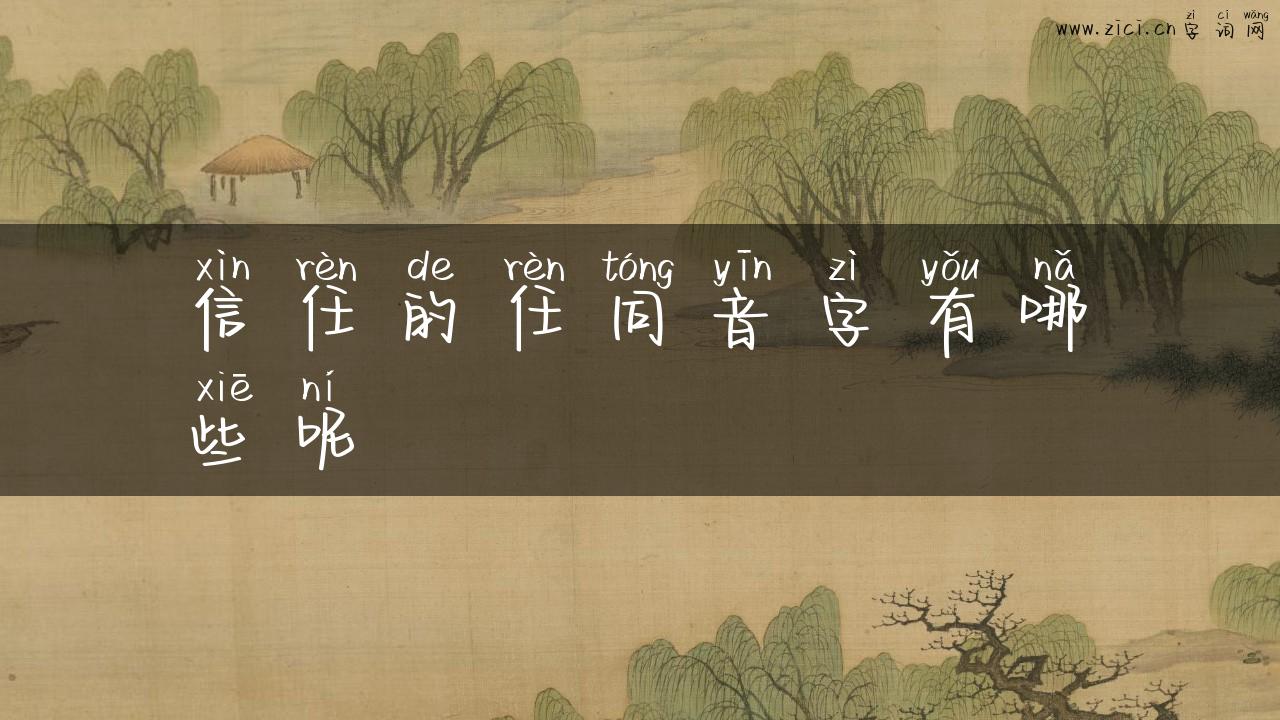 zì cí wǎng
www.zici.cn 字词网
xìn rèn de rèn tóng yīn zì yǒu nǎ
信任的任同音字有哪
xiē ní
些呢